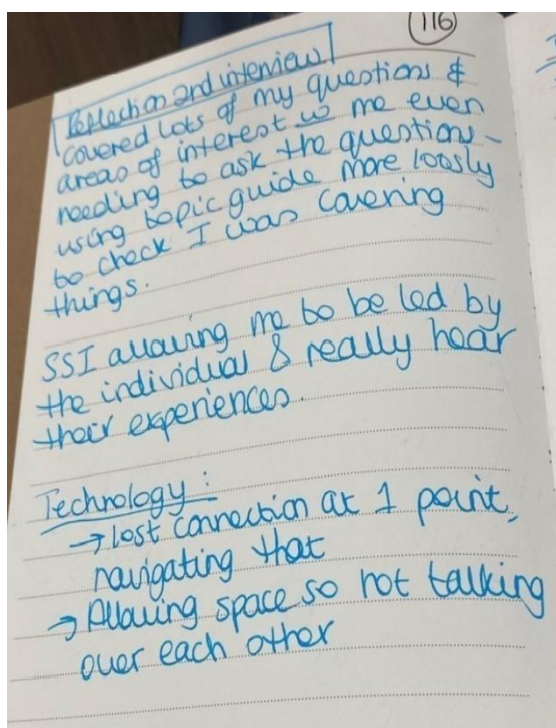 116
Reflection and interview
covered lots of my questions &
areas of interest w me even
needing to ask the questions -
using topic guide more loosly
to check I was covering
things.
SSI allowing me to be led by
the individual & really hear
their experiences.
Technology:
→ lost connection at 1 point,
navigating that
→ Allowing space so not talking
over each other